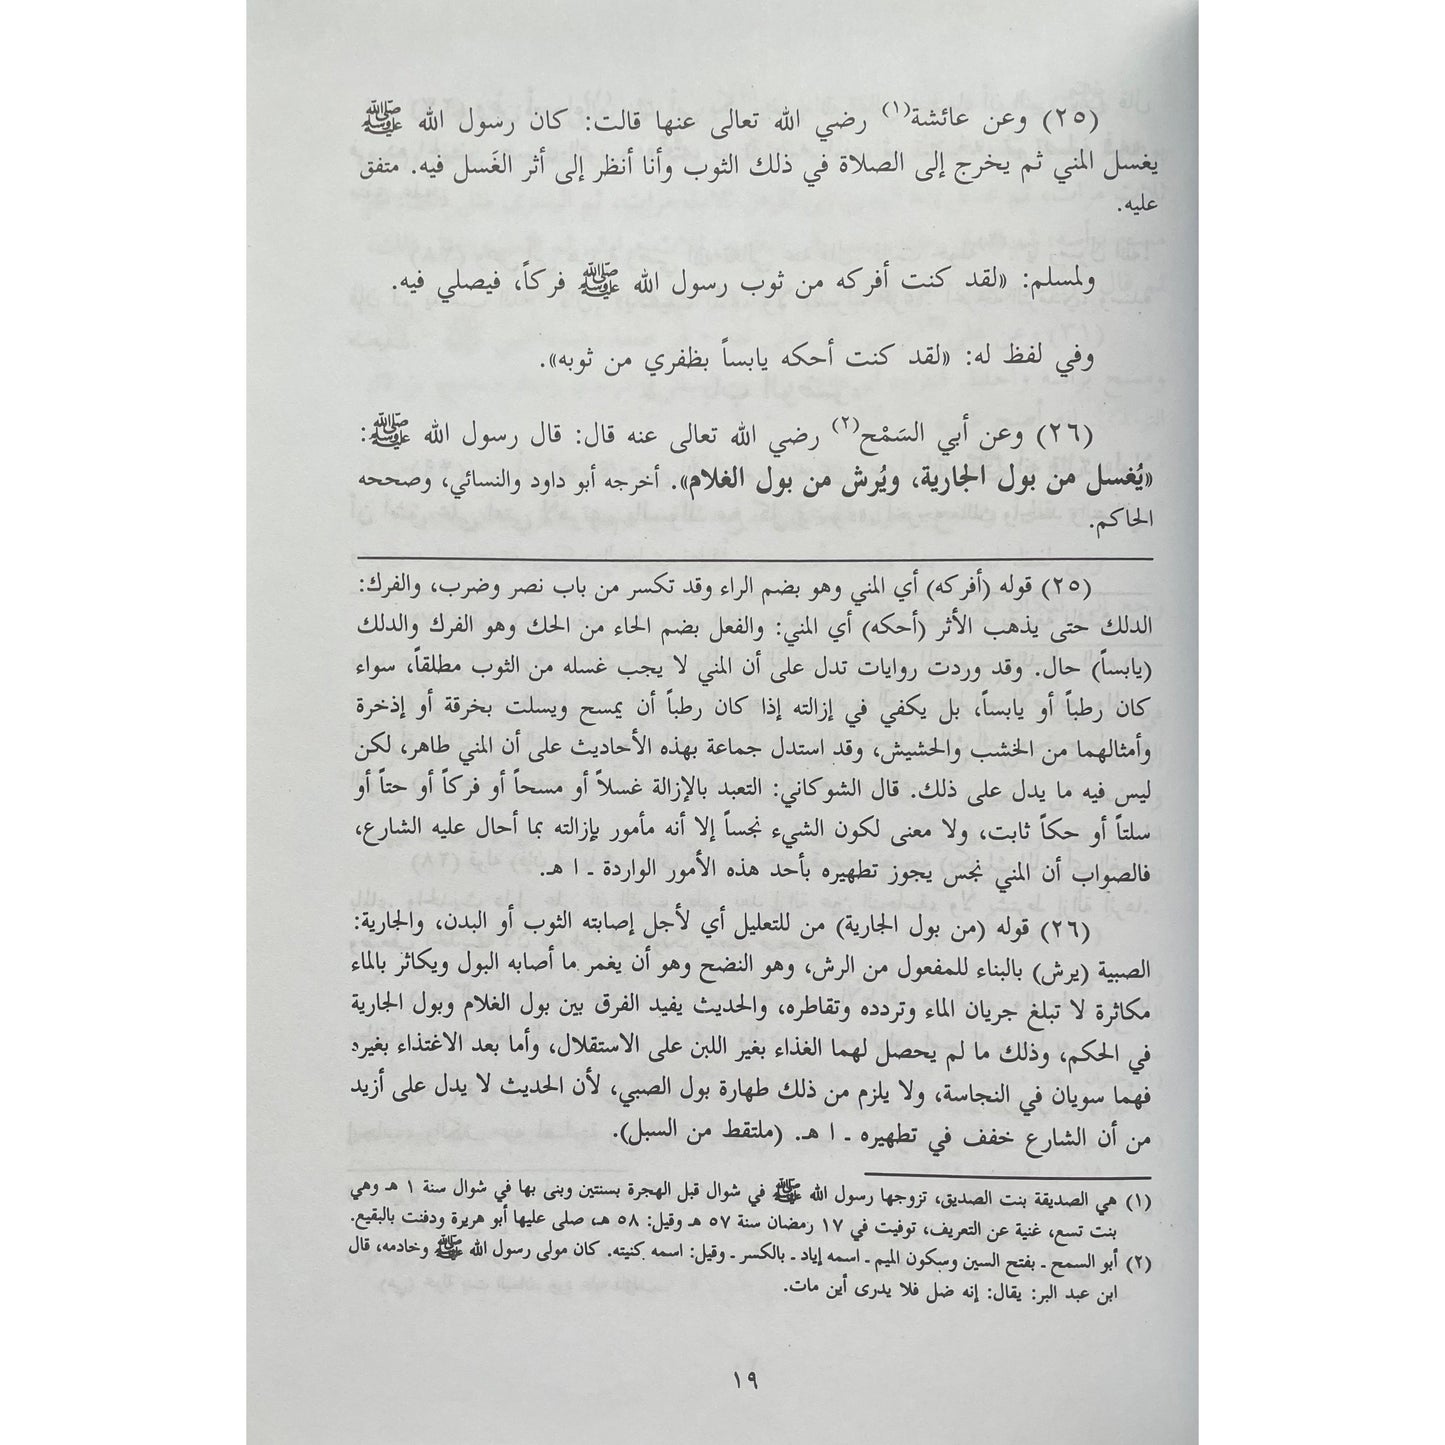 (٢٥) وعن عائشة(١) رضي الله تعالى عنها قالت: كان رسول الله ﷺ
يغسل المني ثم يخرج إلى الصلاة في ذلك الثوب وأنا أنظر إلى أثر الغَسل فيه. متفق
عليه.
ولمسلم: «لقد كنت أفركه من ثوب رسول الله ﷺ فركاً، فيصلي فيه.
وفي لفظ له: «لقد كنت أحكه يابساً بظفري من ثوبه».
(٢٦) وعن أبي السَمْح(٢) رضي الله تعالى عنه قال: قال رسول الله ﷺ:
«يُغسل من بول الجارية، ويُرش من بول الغلام». أخرجه أبو داود والنسائي، وصححه
الحاكم.
(٢٥) قوله (أفركه) أي المني وهو بضم الراء وقد تكسر من باب نصر وضرب، والفرك:
الدلك حتى يذهب الأثر (أحكه) أي المني: والفعل بضم الحاء من الحك وهو الفرك والدلك
(يابساً) حال. وقد وردت روايات تدل على أن المني لا يجب غسله من الثوب مطلقاً، سواء
كان رطباً أو يابساً، بل يكفي في إزالته إذا كان رطباً أن يمسح ويسلت بخرقة أو إذخرة
وأمثالهما من الخشب والحشيش، وقد استدل جماعة بهذه الأحاديث على أن المني طاهر، لكن
ليس فيه ما يدل على ذلك. قال الشوكاني: التعبد بالإزالة غسلاً أو مسحاً أو فركاً أو حتاً أو
سلتاً أو حكاً ثابت، ولا معنى لكون الشيء نجساً إلا أنه مأمور بإزالته بما أحال عليه الشارع،
فالصواب أن المني نجس يجوز تطهيره بأحد هذه الأمور الواردة ـ ا هـ.
(٢٦) قوله (من بول الجارية) من للتعليل أي لأجل إصابته الثوب أو البدن، والجارية:
الصبية (يرش) بالبناء للمفعول من الرش، وهو النضح وهو أن يغمر ما أصابه البول ويكاثر بالماء
مكاثرة لا تبلغ جريان الماء وتردده وتقاطره، والحديث يفيد الفرق بين بول الغلام وبول الجارية
في الحكم، وذلك ما لم يحصل لهما الغذاء بغير اللبن على الاستقلال، وأما بعد الاغتذاء بغيره
فهما سويان في النجاسة، ولا يلزم من ذلك طهارة بول الصبي، لأن الحديث لا يدل على أزيد
من أن الشارع خفف في تطهيره ـ ا هـ. (ملتقط من السبل).
(١) هي الصديقة بنت الصديق، تزوجها رسول الله ﷺ في شوال قبل الهجرة بسنتين وبنى بها في شوال سنة ١ هـ وهي
بنت تسع، غنية عن التعريف، توفيت في ١٧ رمضان سنة ٥٧ هـ وقيل: ٥٨ هـ، صلى عليها أبو هريرة ودفنت بالبقيع.
(٢) أبو السمح ـ بفتح السين وسكون الميم ـ اسمه إياد ـ بالكسر ـ وقيل: اسمه كنيته. كان مولى رسول الله ﷺ وخادمه، قال
ابن عبد البر: يقال: إنه ضل فلا يدرى أين مات.
١٩